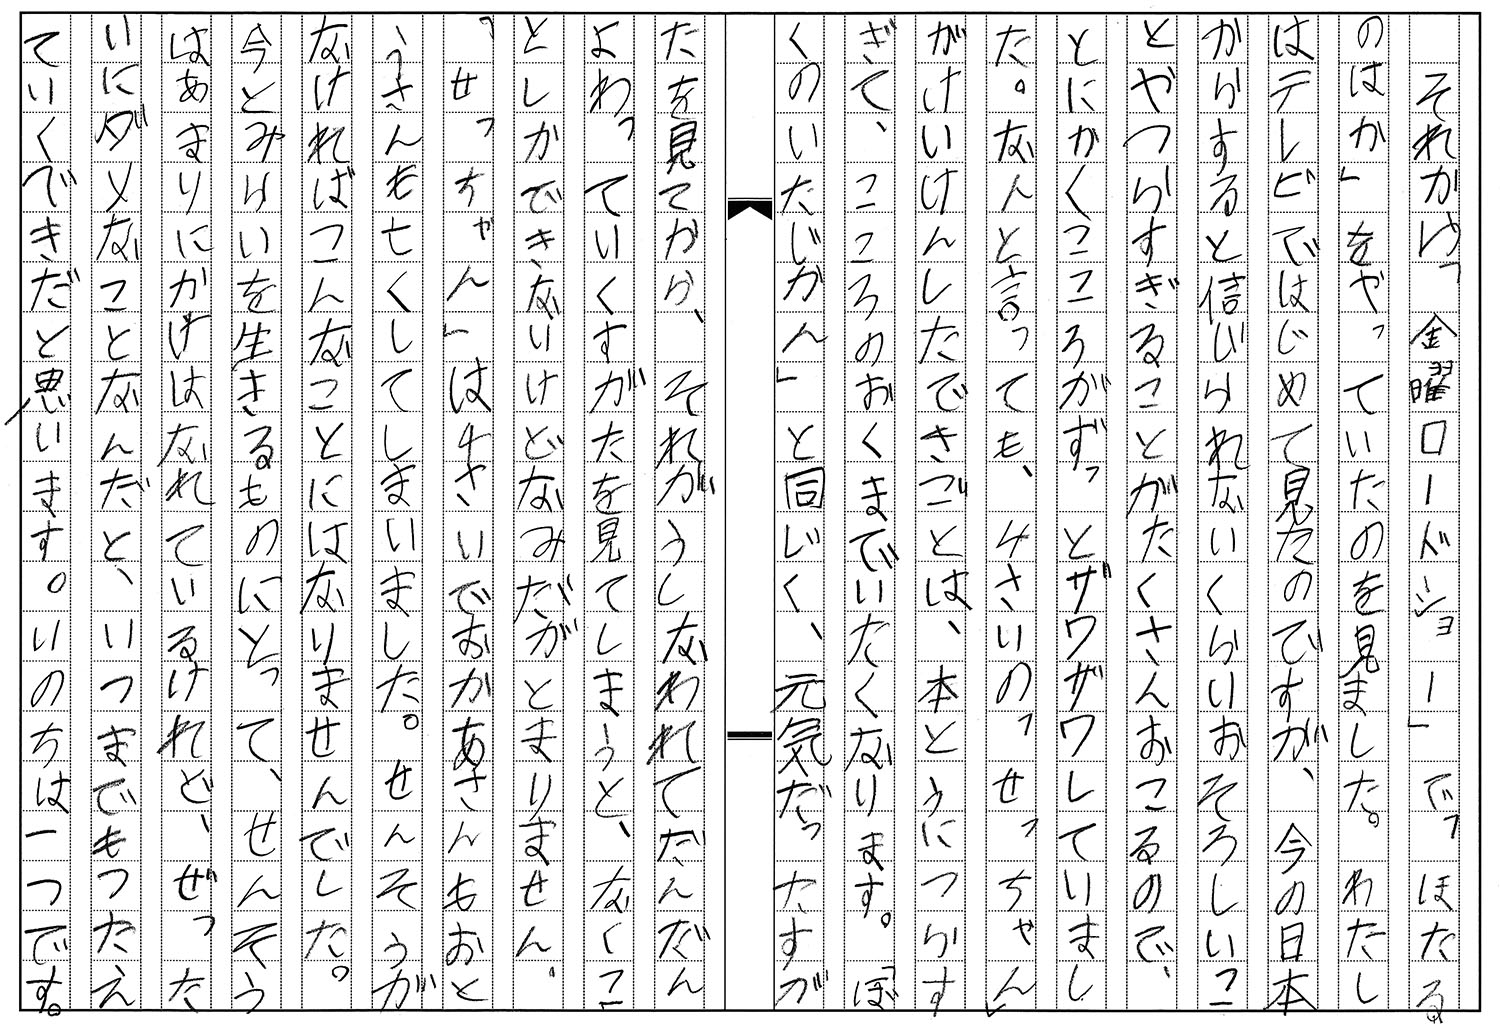 それから、「金曜ロードショー」で、「ほたる
のはか」をやっていたのを見ました。わたし
はテレビではじめて見たのですが、今の日本
からすると信じられないくらいおそろしいこ
とやつらすぎることがたくさんおこるので、
とにかくこころがずっとザワザワしていまし
た。なんと言っても、4さいの「せっちゃん」
がけいけんしたできごとは、本とうにつらす
ぎて、こころのおくまでいたくなります。「ぼ
くのいたじかん」と同じく、元気だったすが
たを見てから、それがうしなわれてだんだん
よわっていくすがたを見てしまうと、なくこ
としかできないけどなみだがとまりません。
「せっちゃん」は4さいでおかあさんもおと
うさんも亡くしてしまいました。せんそうが
なければこんなことにはなりませんでした。
今とみらいを生きるものにとって、せんそう
はあまりにかけはなれているけれど、ぜった
いにダメなことなんだと、いつまでもつたえ
ていくできだと思います。いのちは一つです。